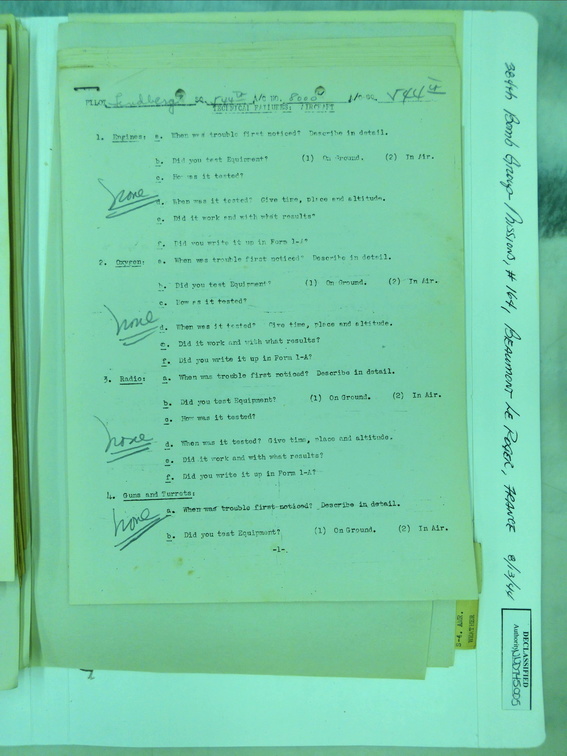 Lindberg SQ. 544th A/C NO. 8000 544th
TECHNICAL FAILURES: AIRCRAFT
1. Engines: a. When was trouble first noticed? Describe in detail.
b. Did you test Equipment? (1) On Ground. (2) In Air.
c. How was it tested?
none
d. When was it tested? Give time, place and altitude.
e. Did it work and with what results?
f. Did you write it up in Form 1-A?
2. Oxygen: a. When was trouble first noticed? Describe in detail.
b. Did you test Equipment? (1) On Ground. (2) In Air.
c. How was it tested?
none
d. When was it tested? Give time, place and altitude.
e. Did it work and with what results?
f. Did you write it up in Form 1-A?
3. Radio: a. When was trouble first noticed? Describe in detail.
b. Did you test Equipment? (1) On Ground. (2) In Air.
c. How was it tested?
none
d. When was it tested? Give time, place and altitude.
e. Did it work and with what results?
f. Did you write it up in Form 1-A?
4. Guns and Turrets:
none
a. When was trouble first noticed? Describe in detail.
b. Did you test Equipment? (1) On Ground. (2) In Air.
-1-
384th Bomb Group-Missions, #164, Beaumont Le Roger, France 8/13/44
DECLASSIFIED
Authority NND745005
WEATHER